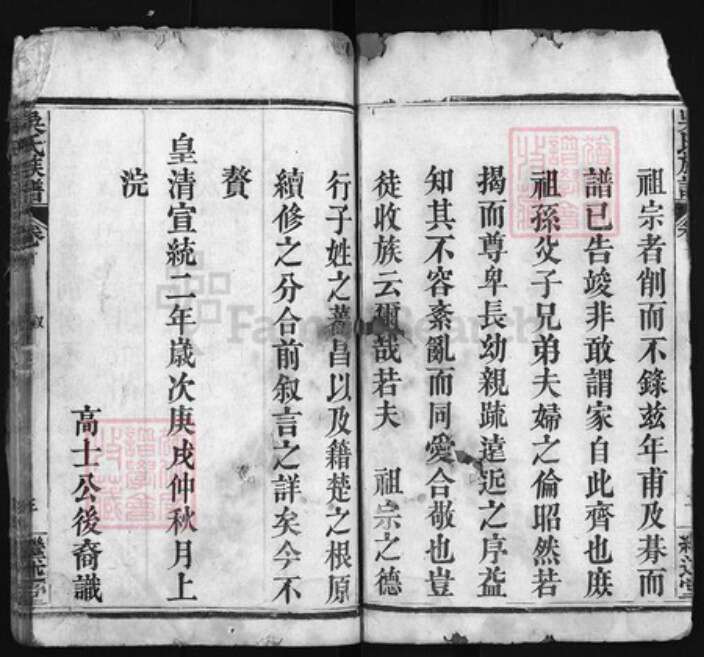 祖宗者削而不錄玆年甫及朞而
譜已告竣非敢謂家自此齊也庶
祖孫父子兄弟夫婦之倫昭然若
揭而尊卑長幼親疏遠近之序益
知其不容紊亂而同愛合敬也豈
徒收族云爾哉若夫 祖宗之德
行子姓之蕃昌以及藉楚之根原
續修之分合前叙言之詳矣今不
贅
皇清宣統二年歲次庚戌仲秋月上
浣
高士公後裔識
吳氏族譜
卷
繼述堂
FamilySearch